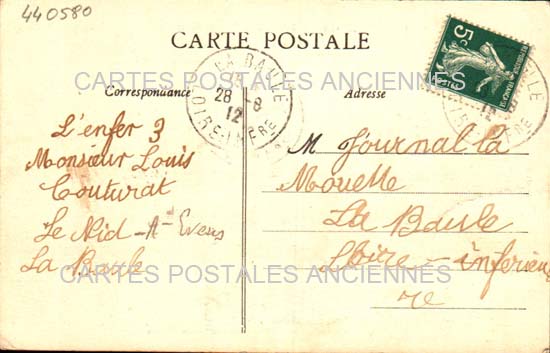 440580
CARTE POSTALE
CARTES POSTALES ANCIENNES
Correspondance
Adresse
LA BAULE
28 -8
12
LOIRE-INFRE
5c
L'enfer 3
Monsieur Louis
Couturat
Le Nid-A-Evens
La Baule
M Journal La
Mouette
La Baule
Loire-inferieu
re
CARTES POSTALES ANCIENNES